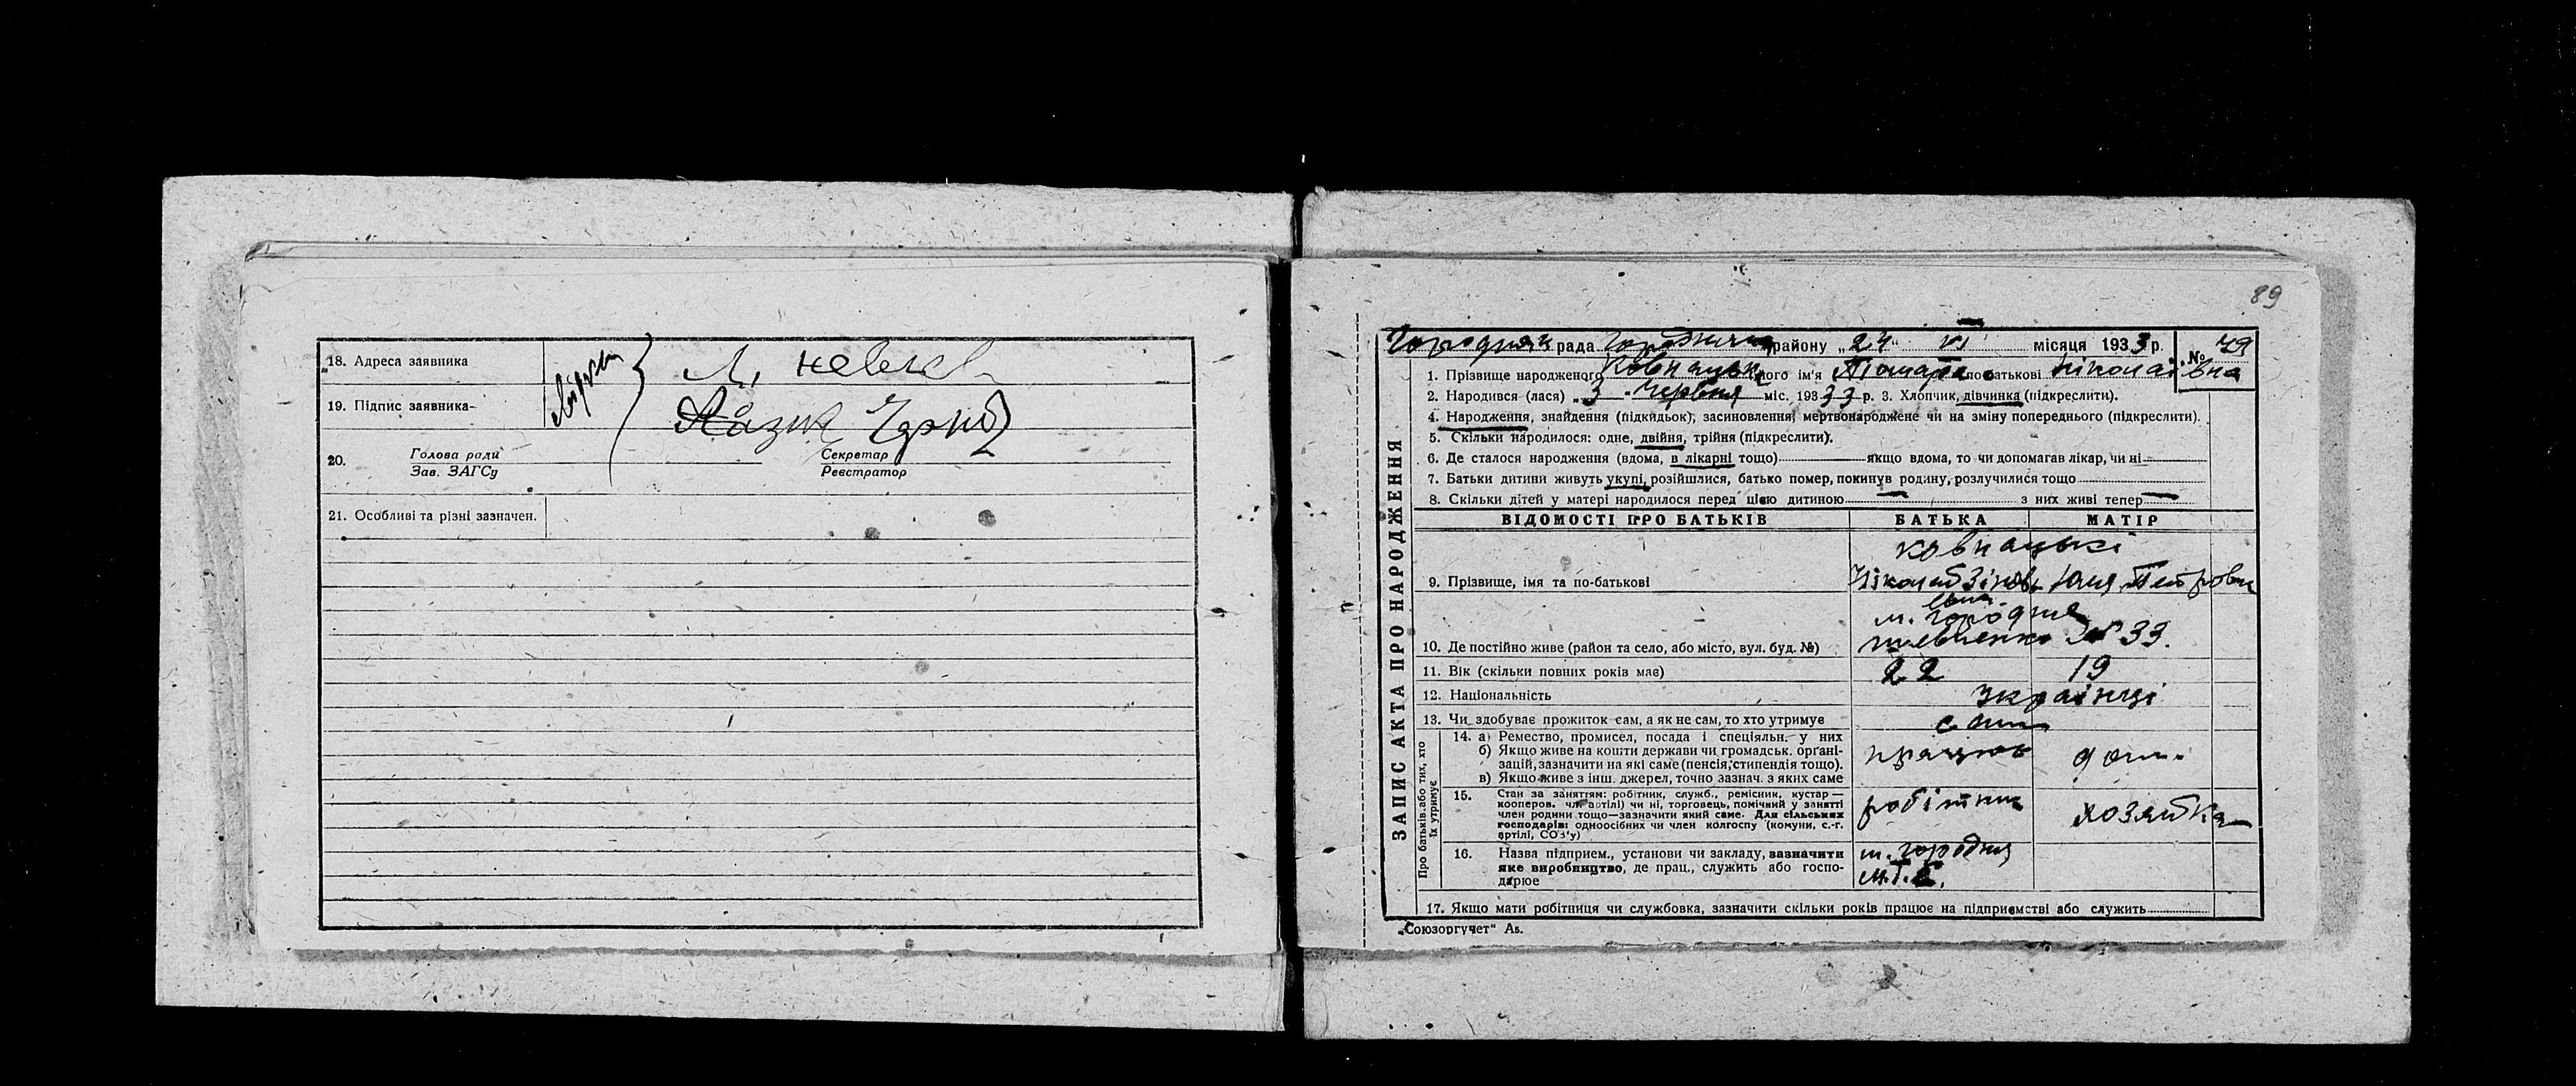 18. Адреса заявника
19. Підпис заявника
20. Голова ради Секретар
Зав. ЗАГСу Реєстратор
21. Особливі та різні зазначен.
89
ЗАПИС АКТА ПРО НАРОДЖЕННЯ
рада району „24“ VI місяця 1933 р. № 79
1. Прізвище народженого його ім'я Тамара по батькові Ніколаївна
2. Народився (лася) „3 Червня міс. 1933 р. 3. Хлопчик, дівчинка (підкреслити).
4. Народження, знайдення (підкидьок), засиновлення, мертвонароджене чи на зміну попереднього (підкреслити).
5. Скільки народилося: одне, двійня, трійня (підкреслити).
6. Де сталося народження (вдома, в лікарні тощо) якщо вдома, то чи допомагав лікар, чи ні
7. Батьки дитини живуть укупі, розійшлися, батько помер, покинув родину, розлучилися тощо
8. Скільки дітей у матері народилося перед цією дитиною — з них живі тепер —
ВІДОМОСТІ ПРО БАТЬКІВ БАТЬКА МАТІР
9. Прізвище, імя та по-батькові
м. Городня
10. Де постійно живе (район та село, або місто, вул. буд. №) № 33.
11. Вік (скільки повних років має) 22 19
12. Національність Українці
13. Чи здобуває прожиток сам, а як не сам, то хто утримує сам
Про батьків або тих, хто їх утримує
14. а) Ремество, промисел, посада і спеціяльн. у них
б) Якщо живе на кошти держави чи громадськ. органі-
зацій, зазначити на які саме (пенсія, стипендія тощо).
в) Якщо живе з інш. джерел, точно зазнач. з яких саме
дом.
15. Стан за заняттям: робітник, служб., ремісник, кустар —
кооперов. чл. артілі) чи ні, торговець, помічний у занятті
член родини тощо—зазначити який саме. Для сільських
господарів: одноосібних чи член колгоспу (комуни, с.-г.
артілі, СОЗ'у)
робітник хозяйка
16. Назва підприєм., установи чи закладу, зазначити
яке виробництво, де прац., служить або госпо-
дарює
м. Городня
М.Т.С.
17. Якщо мати робітниця чи службовка, зазначити скільки років працює на підприємстві або служить
„Союзоргучет“ Ав.